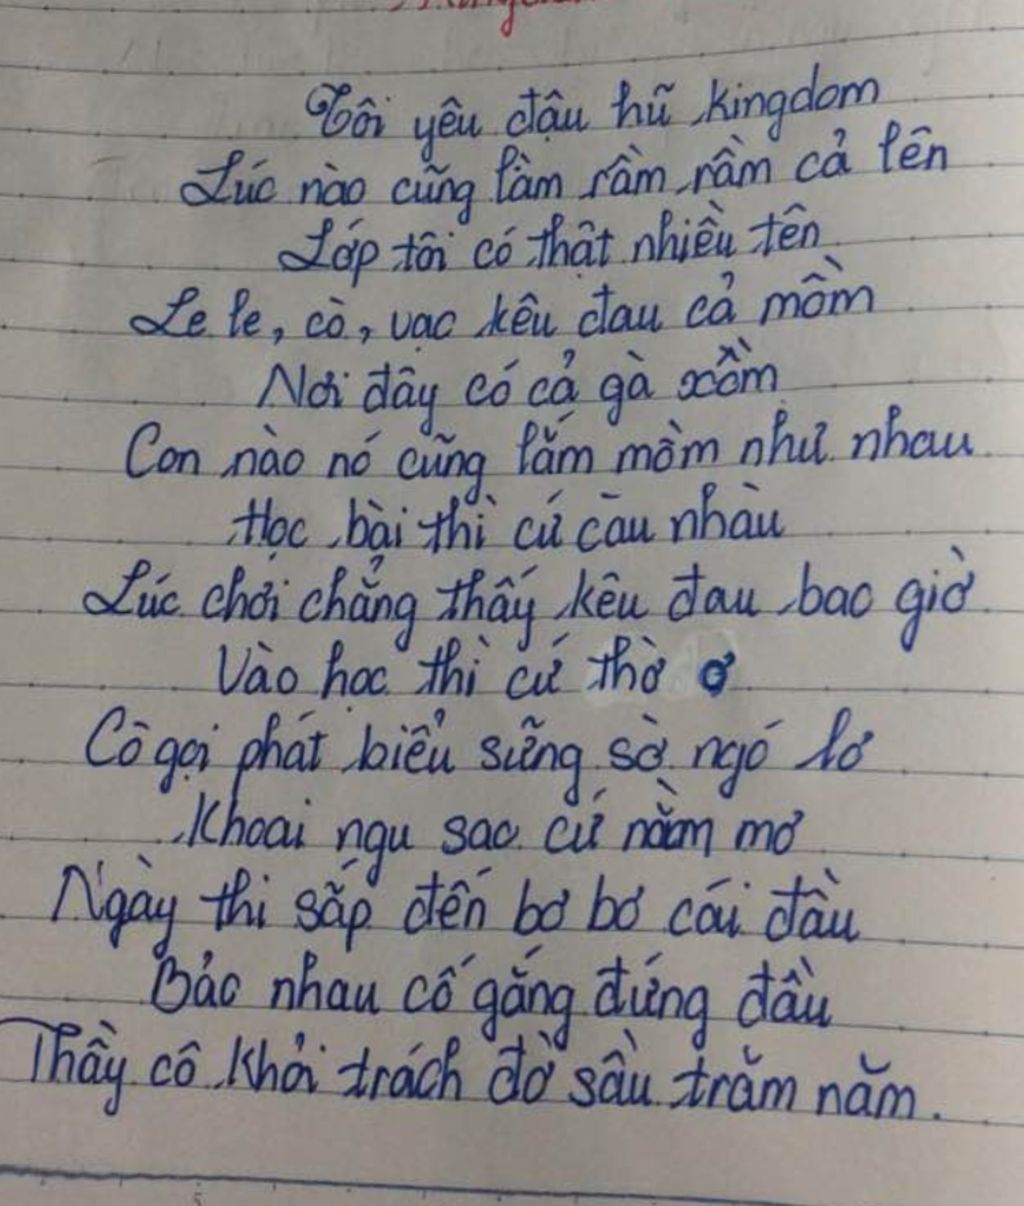 Tôi yêu đậu hũ kingdom
Lúc nào cũng làm rầm rầm cả lên
Lớp tôi có thật nhiều tên
Le le, cò, vạc kêu đau cả mồm
Nơi đây có cả gà xồm
Con nào nó cũng lắm mồm như nhau
Học bài thì cứ càu nhàu
Lúc chơi chẳng thấy kêu đau bao giờ
Vào học thì cứ thờ ơ
Cô gọi phát biểu sững sờ ngó lơ
Khoai ngu sao cứ nằm mơ
Ngày thi sắp đến bơ bơ cái đầu
Bảo nhau cố gắng đứng đầu
Thầy cô khỏi trách đỡ sầu trăm năm.